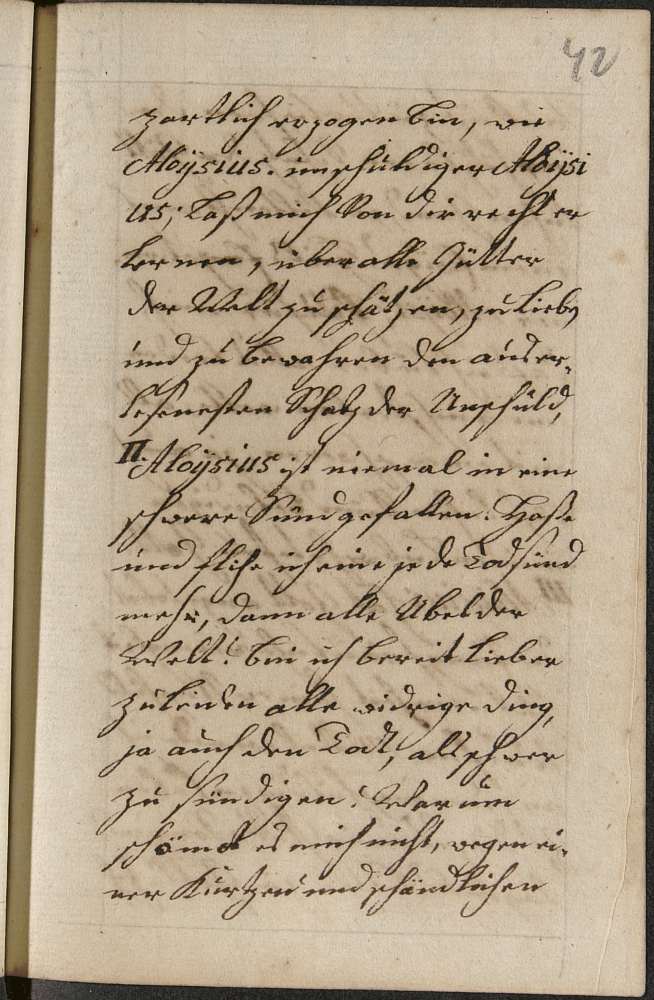 42
zärtlich erzogen bin, wie
Aloÿsius. unschuldiger Aloÿsi
us; laß mich von dir recht er
lernen, über alle Gütter
der Welt zu schätzen, zu lieben
und zu bewahren den auser-
lesenesten Schatz der Unschuld,
II. Aloÿsius ist niemal in eine
schwere Sünd gefallen. Hasse
und fliehe ich eine jede Todsünd
mehr, dann alle Übel der
Welt? bin ich bereit lieber
zu leiden alle widrige Ding,
ja auch den Todt, als schwer
zu sündigen? Warum
schämet es mich nicht, wegen ei-
ner kurtzen und schändlichen